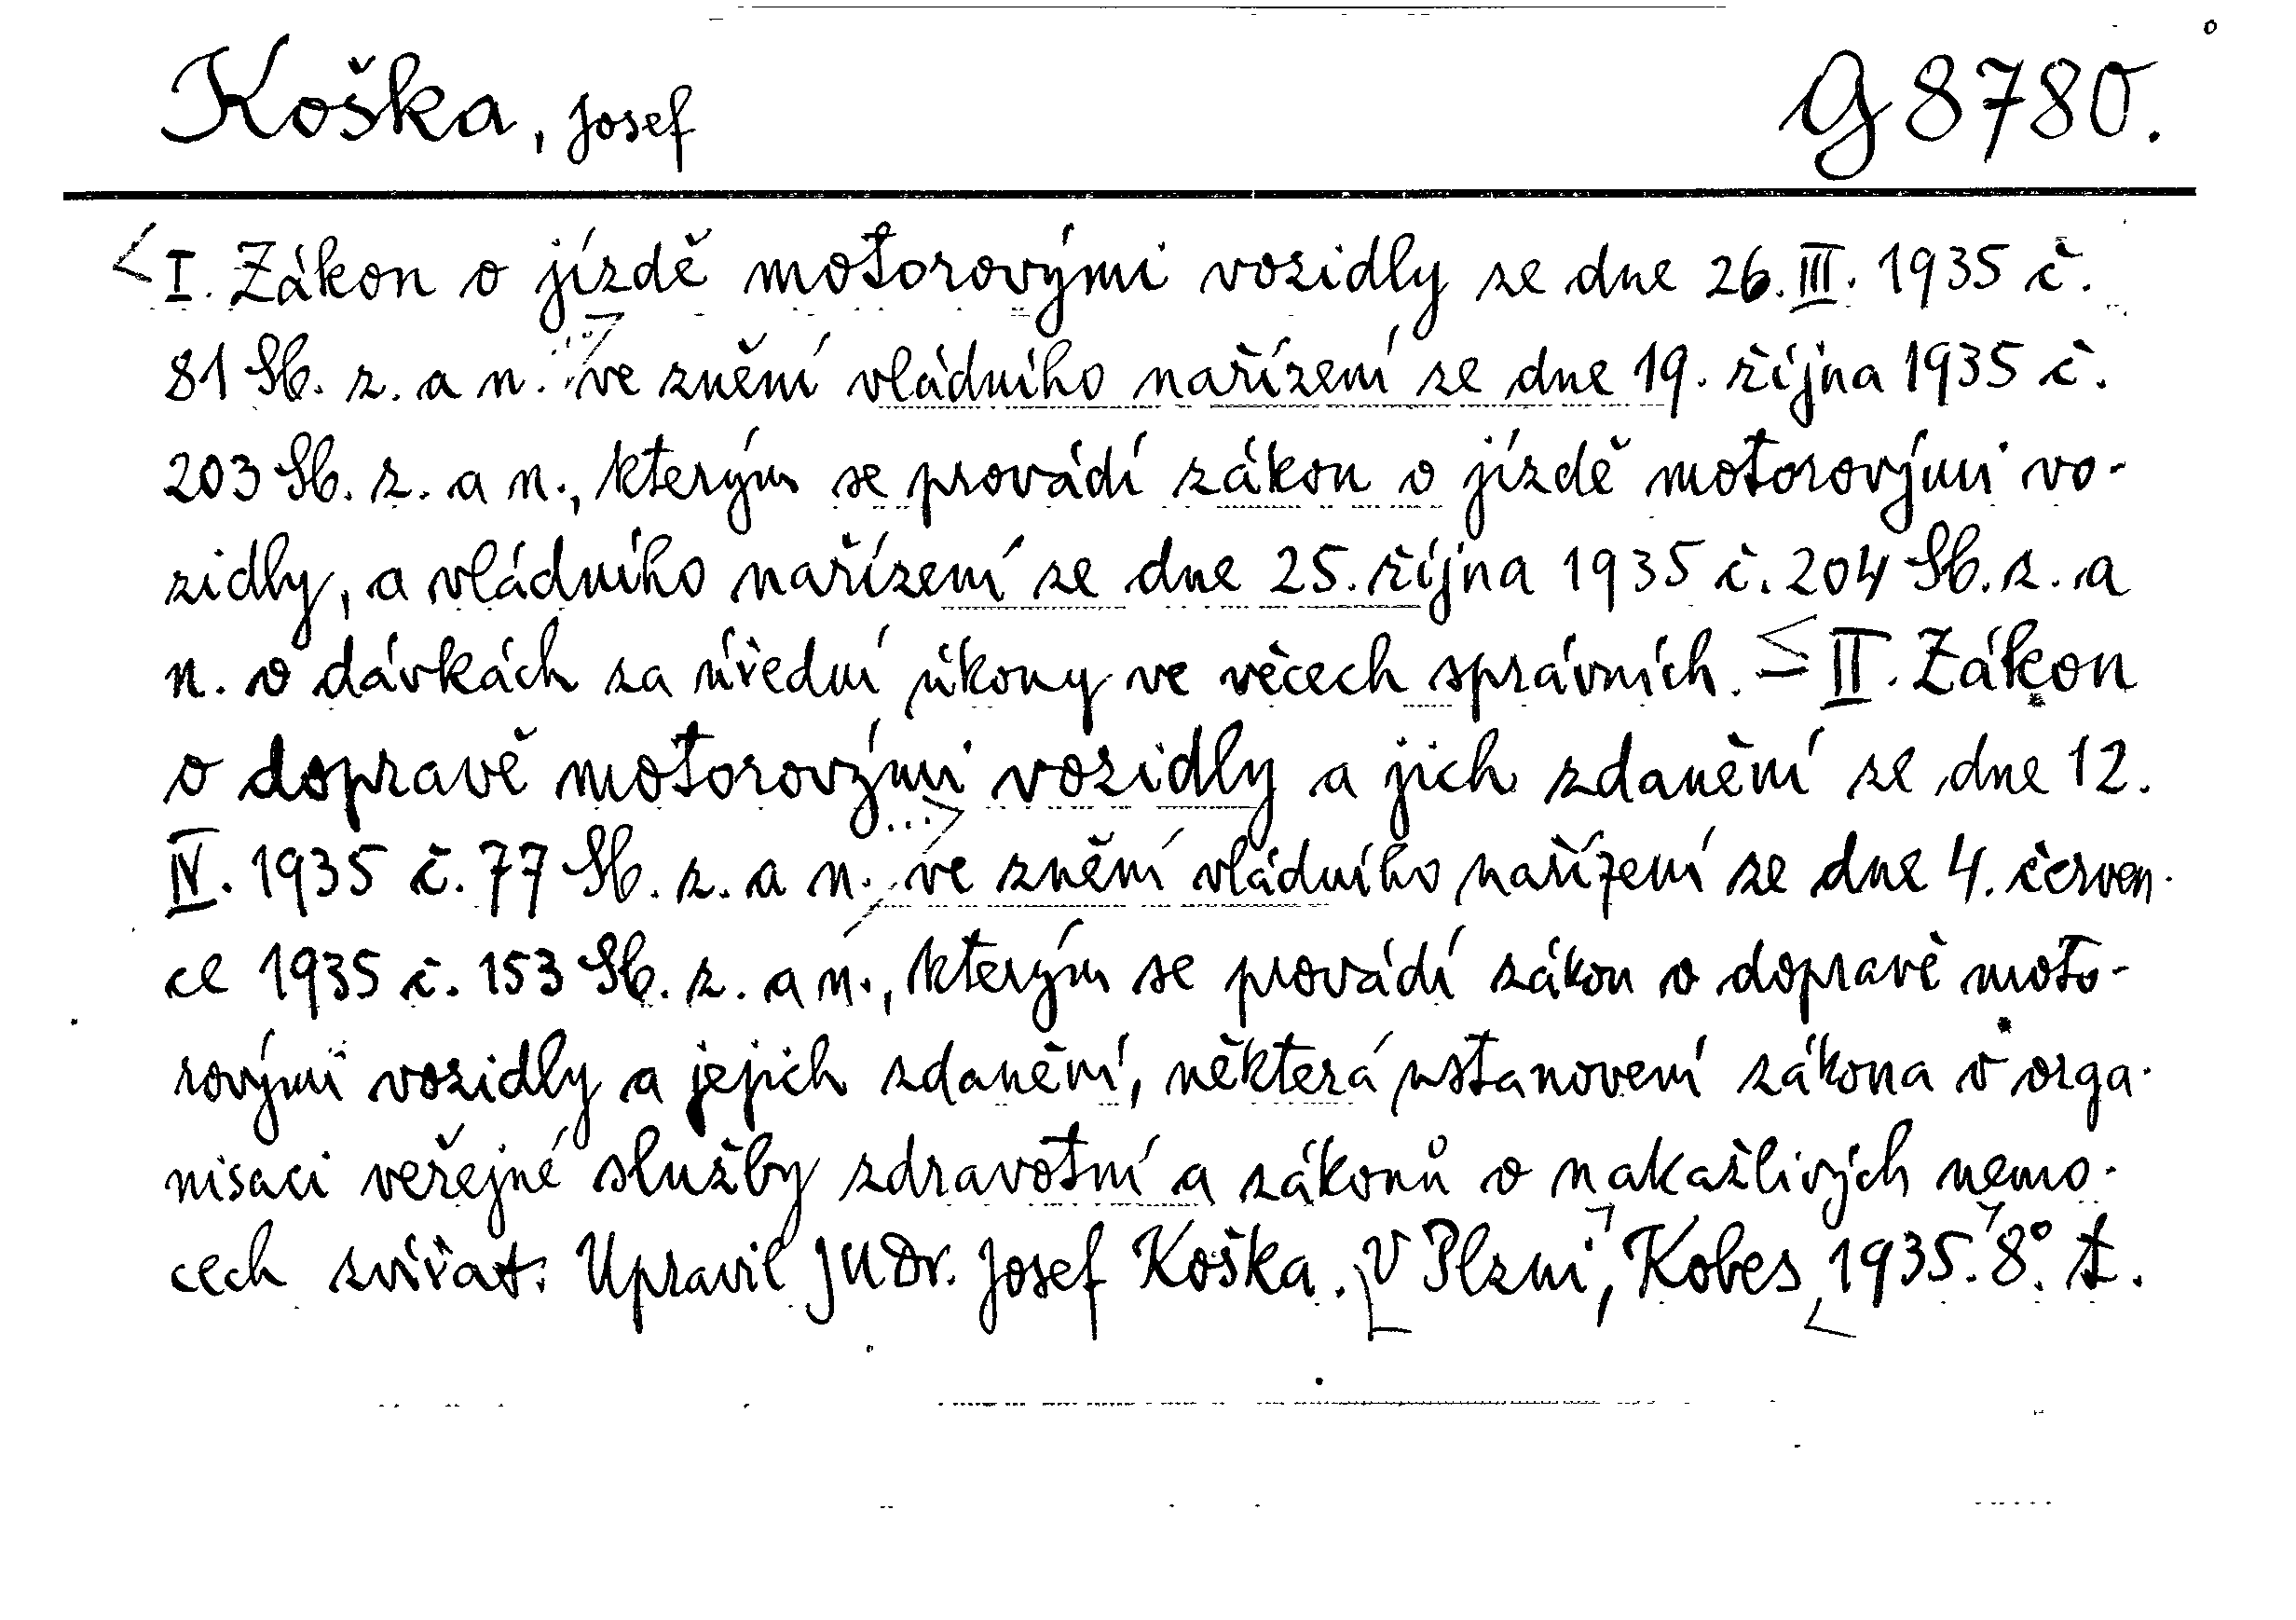 Koška, Josef G 8780.
I. Zákon o jízdě motorovými vozidly ze dne 26. III. 1935 č.
81 Sb. z. a n. ve znění vládního nařízení ze dne 19. října 1935 č.
203 Sb. z. a n., kterým se provádí zákon o jízdě motorovými vo-
zidly, a vládního nařízení ze dne 25. října 1935 č. 204 Sb. z. a
n. o dávkách za úřední úkony ve věcech správních. = II. Zákon
o dopravě motorovými vozidly a jich zdanění ze dne 12.
IV. 1935 č. 77 Sb. z. a n. ve znění vládního nařízení ze dne 4. červen-
ce 1935 č. 153 Sb. z. a n., kterým se provádí zákon o dopravě moto-
rovými vozidly a jejich zdanění, některá ustanovení zákona o orga-
nisaci veřejné služby zdravotní a zákonů o nakažlivých nemo-
cech zvířat. Upravil JUDr. Josef Koška. V Plzni, Kobes 1935. 8°.